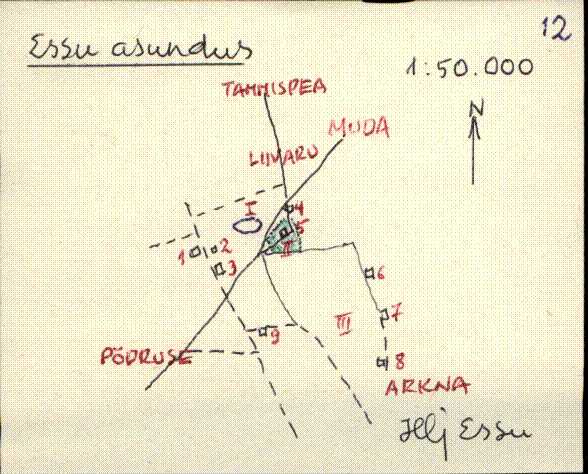 12
Essu asundus
1:50.000
TAMMISPEA
N
MUDA
LIIVARU
I
4
5
1 2
II
3
6
7
III
9
PÕDRUSE
8
ARKNA
Hlj Essu